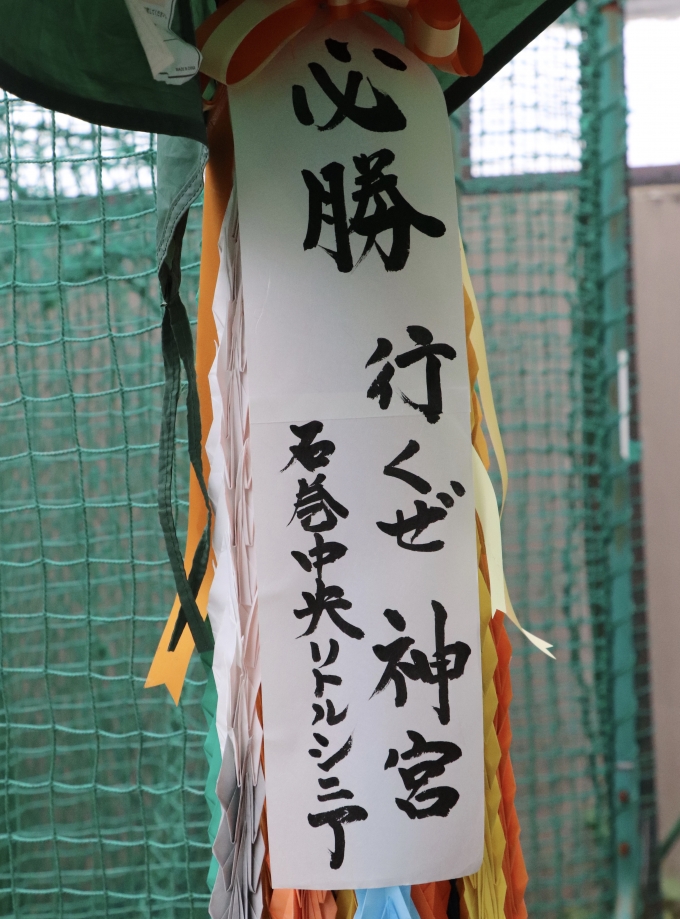 必勝
行くぜ 神宮
石巻中央リトルシニア